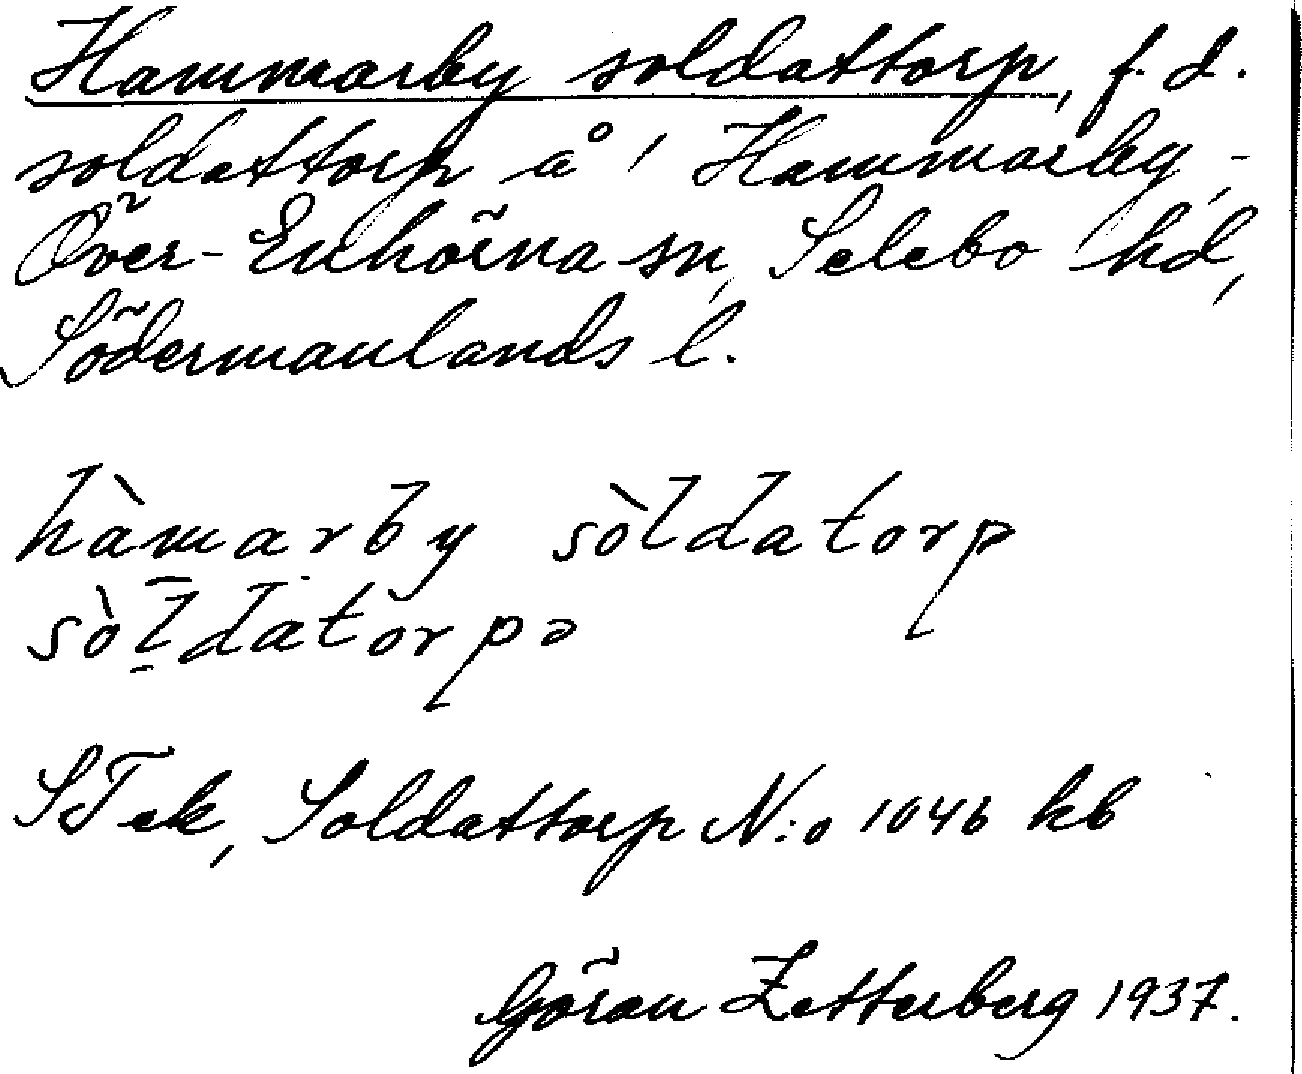 Hammarby soldattorp, f.d.
soldattorp å Hammarby,-
Över-Enhörna sn, Selebo hd,
Södermanlands l.
hàmarby sòldatorp
sòldatorpə
STek, Soldattorp N:o 1046 kb
Göran Zetterberg 1937.